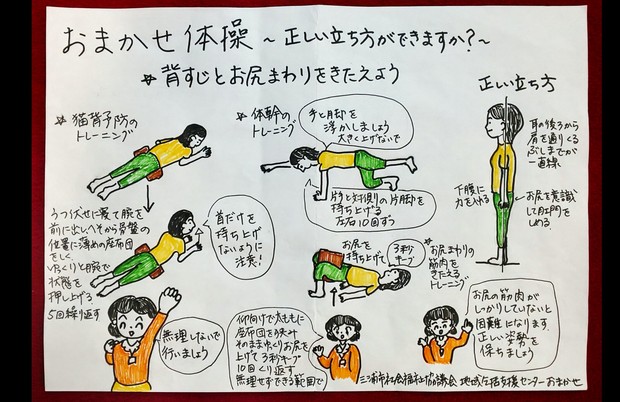 おまかせ体操 ~正しい立ち方ができますか?~
背すじとお尻まわりをきたえよう
猫背予防の
トレーニング
うつ伏せに寝て腕を
前に出しへそから骨盤の
位置に薄めの座布団
をしく
ゆっくりと腕で
状態を
押し上げる
5回繰り返す
首だけを
持ち上げ
ないように
注意!
無理しないで
行いましょう
体幹の
トレーニング
手と脚を
浮かしましょう
大きく上げないで
片手と対側の片脚を
持ち上げる
左右10回ずつ
お尻を
持ち上げて
3秒
キープ
お尻まわりの
筋肉を
きたえる
トレーニング
仰向けで太ももに
座布団を挟み
そのままゆっくりお尻を
上げて3秒キープ
10回くり返す
無理せずできる範囲で
正しい立ち方
耳の後ろから
肩を通りくる
ぶしまでが
一直線
下腹に
力を入れる
お尻を意識
して肛門を
しめる
お尻の筋肉が
しっかりしていないと
困難になります
正しい姿勢を
保ちましょう
三浦市社会福祉協議会 地域生活支援センターおまかせ